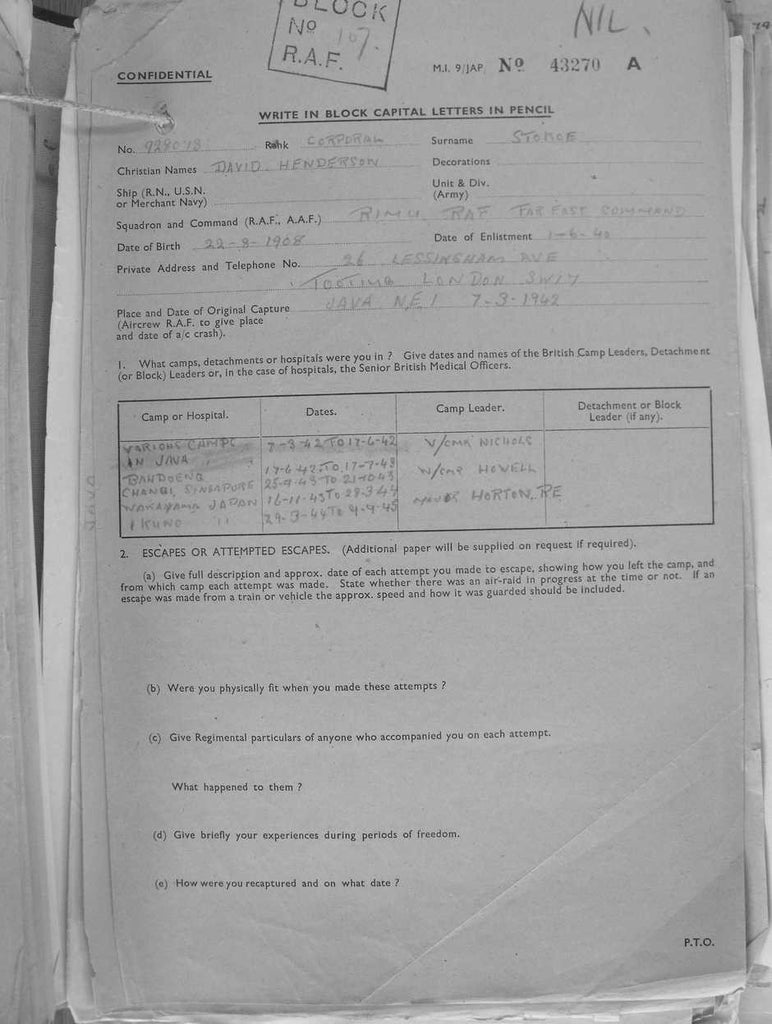 BLOCK
Nº 107.
R.A.F.
NIL.
CONFIDENTIAL
M.I. 9/JAP Nº 43270 A
WRITE IN BLOCK CAPITAL LETTERS IN PENCIL
No. Rank CORPORAL Surname
Christian Names DAVID HENDERSON Decorations
Ship (R.N., U.S.N.
or Merchant Navy)
Unit & Div.
(Army)
Squadron and Command (R.A.F., A.A.F.) RIMU RAF FAR EAST COMMAND
Date of Birth 22-8-1908 Date of Enlistment 1-6-40
Private Address and Telephone No. 26 LESSINGHAM AVE
TOOTING LONDON
Place and Date of Original Capture JAVA N.E.I 7-3-1942
(Aircrew R.A.F. to give place
and date of a/c crash).
1. What camps, detachments or hospitals were you in ? Give dates and names of the British Camp Leaders, Detachment
(or Block) Leaders or, in the case of hospitals, the Senior British Medical Officers.
Camp or Hospital. Dates. Camp Leader. Detachment or Block
Leader (if any).
VARIOUS CAMPS 7-3-42 TO 17-6-42 W/CMR NICHOLS
IN JAVA
BANDOENG 17-6-42 TO 17-9-43
CHANGI, SINGAPORE 25-9-43 TO 21-10-43 W/CMR HOWELL
WAKAYAMA JAPAN 16-11-43 TO 28-3-44 MAJOR HORTON, RE
IKUNO " 29-3-44 TO 4-9-45
2. ESCAPES OR ATTEMPTED ESCAPES. (Additional paper will be supplied on request if required).
(a) Give full description and approx. date of each attempt you made to escape, showing how you left the camp, and
from which camp each attempt was made. State whether there was an air-raid in progress at the time or not. If an
escape was made from a train or vehicle the approx. speed and how it was guarded should be included.
(b) Were you physically fit when you made these attempts ?
(c) Give Regimental particulars of anyone who accompanied you on each attempt.
What happened to them ?
(d) Give briefly your experiences during periods of freedom.
(e) How were you recaptured and on what date ?
P.T.O.